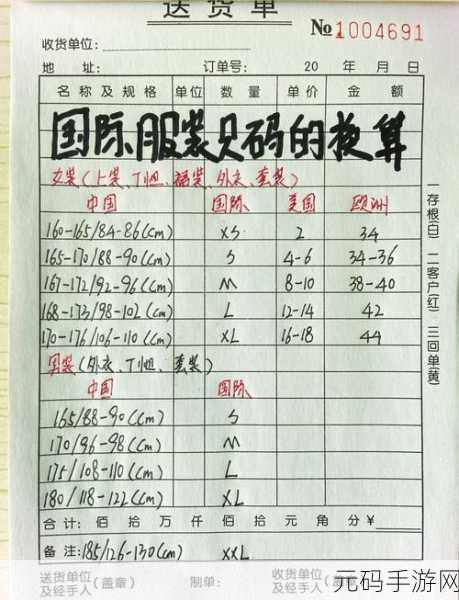 送货单
№1004691
收货单位:
地 址: 订单号: 20 年 月 日
名称及规格 单位 数量 单价 金额
国际服装尺码的换算
女装(上装、T恤、裙装、外衣、套装)
中国 国际 美国 欧洲
160-165/84-86(cm) XS 2 34
165-170/88-90(cm) S 4-6 34-36
167-172/92-96(cm) M 8-10 38-40
168-173/98-102(cm) L 12-14 42
170-176/106-110(cm) XL 16-18 44
男装(外衣、T恤、套装)
中国 国际
165/88-90(cm) S
170/96-98(cm) M
175/108-110(cm) L
180/118-122(cm) XL
合计: 佰 拾 万 仟 佰 拾 元 角 分¥
备注:185/126-130(cm) XXL
送货单位及经手人(盖章) 制单: 收货单位及经手人(盖章)
一存根(白) 二客户(红) 三回单(黄)
元码手游网